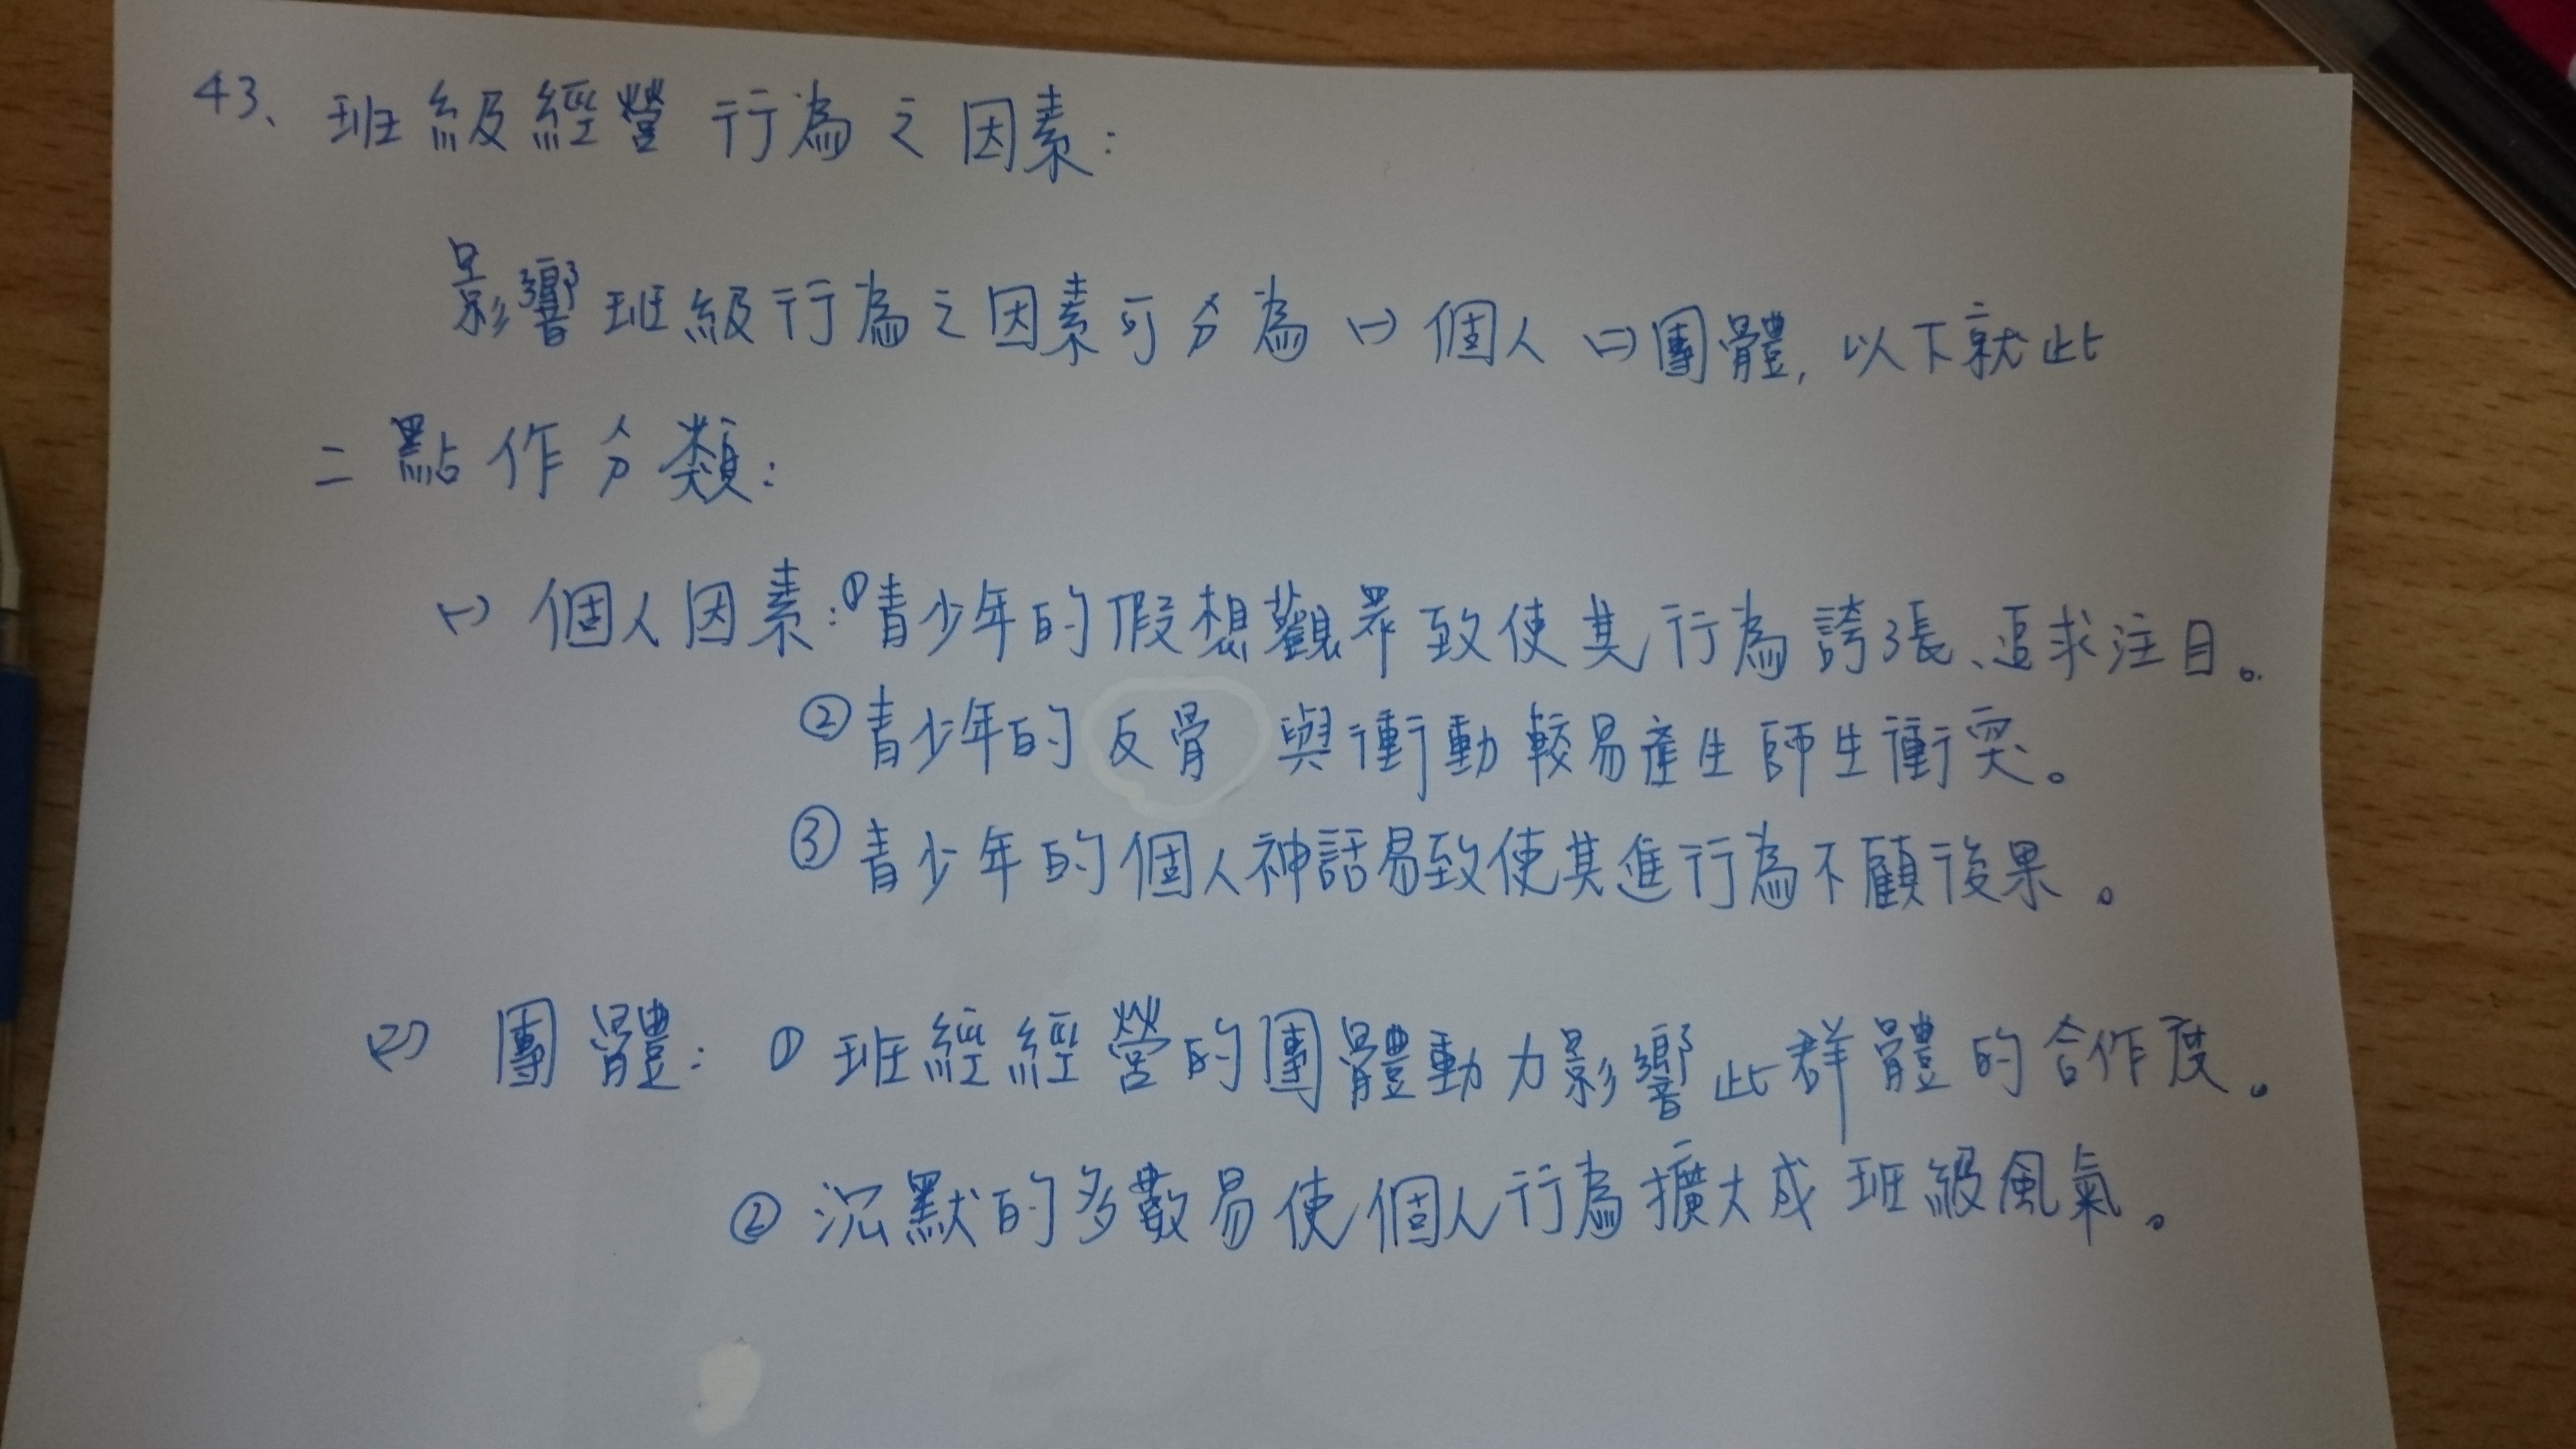 43、班級經營行為之因素:
影響班級行為之因素可分為(一)個人(二)團體,以下就此
二點作分類:
(一)個人因素:①青少年的假想觀眾致使其行為誇張、追求注目。
②青少年的反骨與衝動較易產生師生衝突。
③青少年的個人神話易致使其進行為不顧後果。
(二)團體:①班經經營的團體動力影響此群體的合作度。
②沉默的多數易使個人行為擴大成班級風氣。